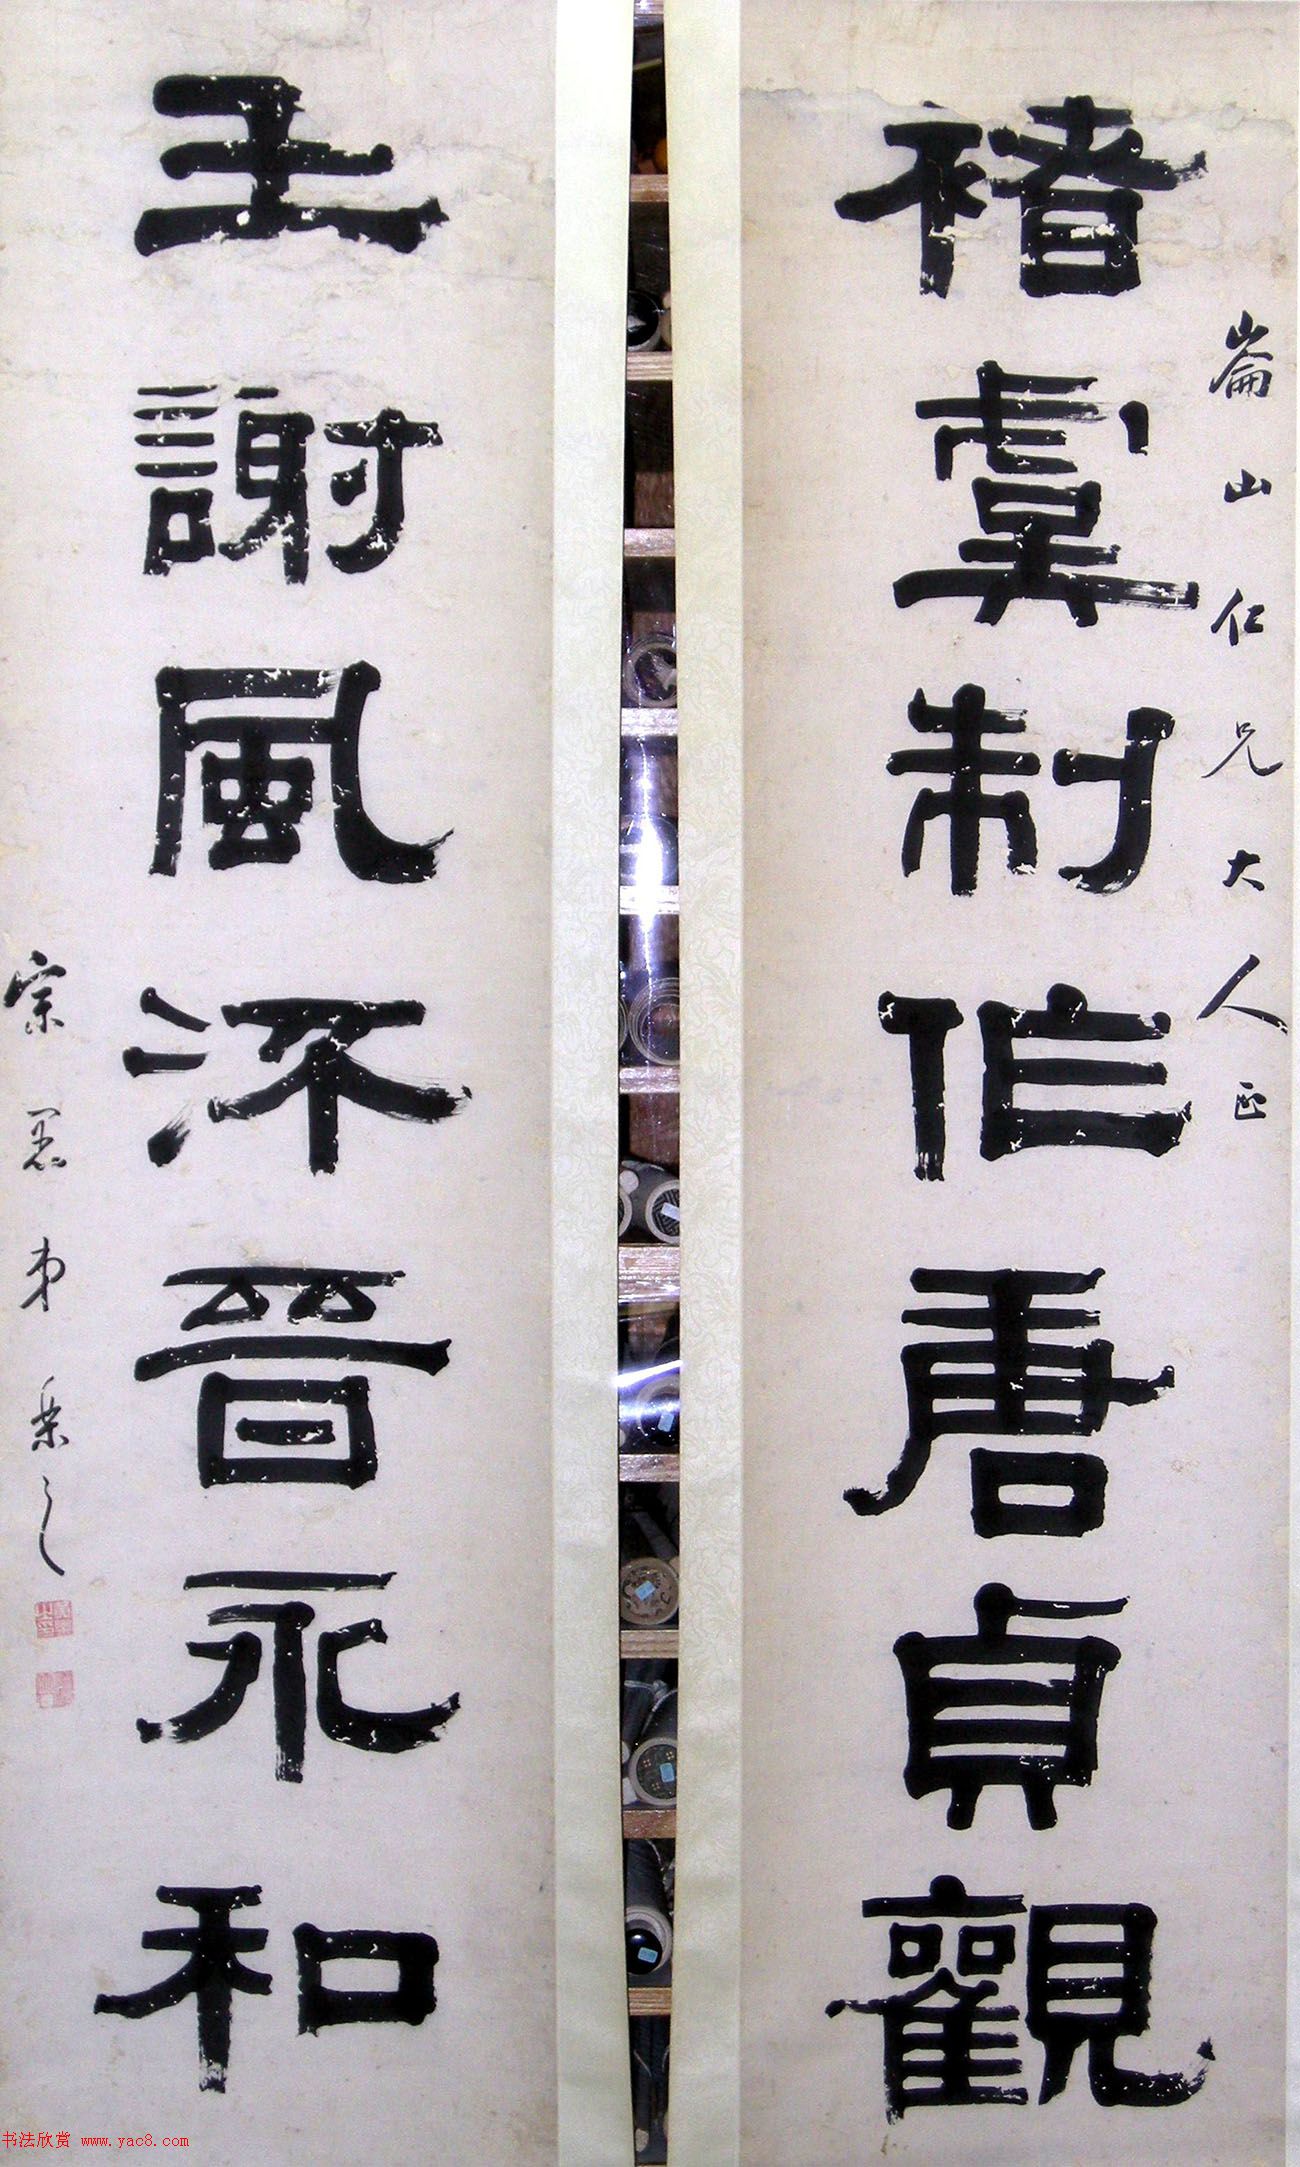 褚虞制作唐貞觀
崙山仁兄大人正
王謝風流晉永和
宗愚弟
书法欣赏 www.yac8.com